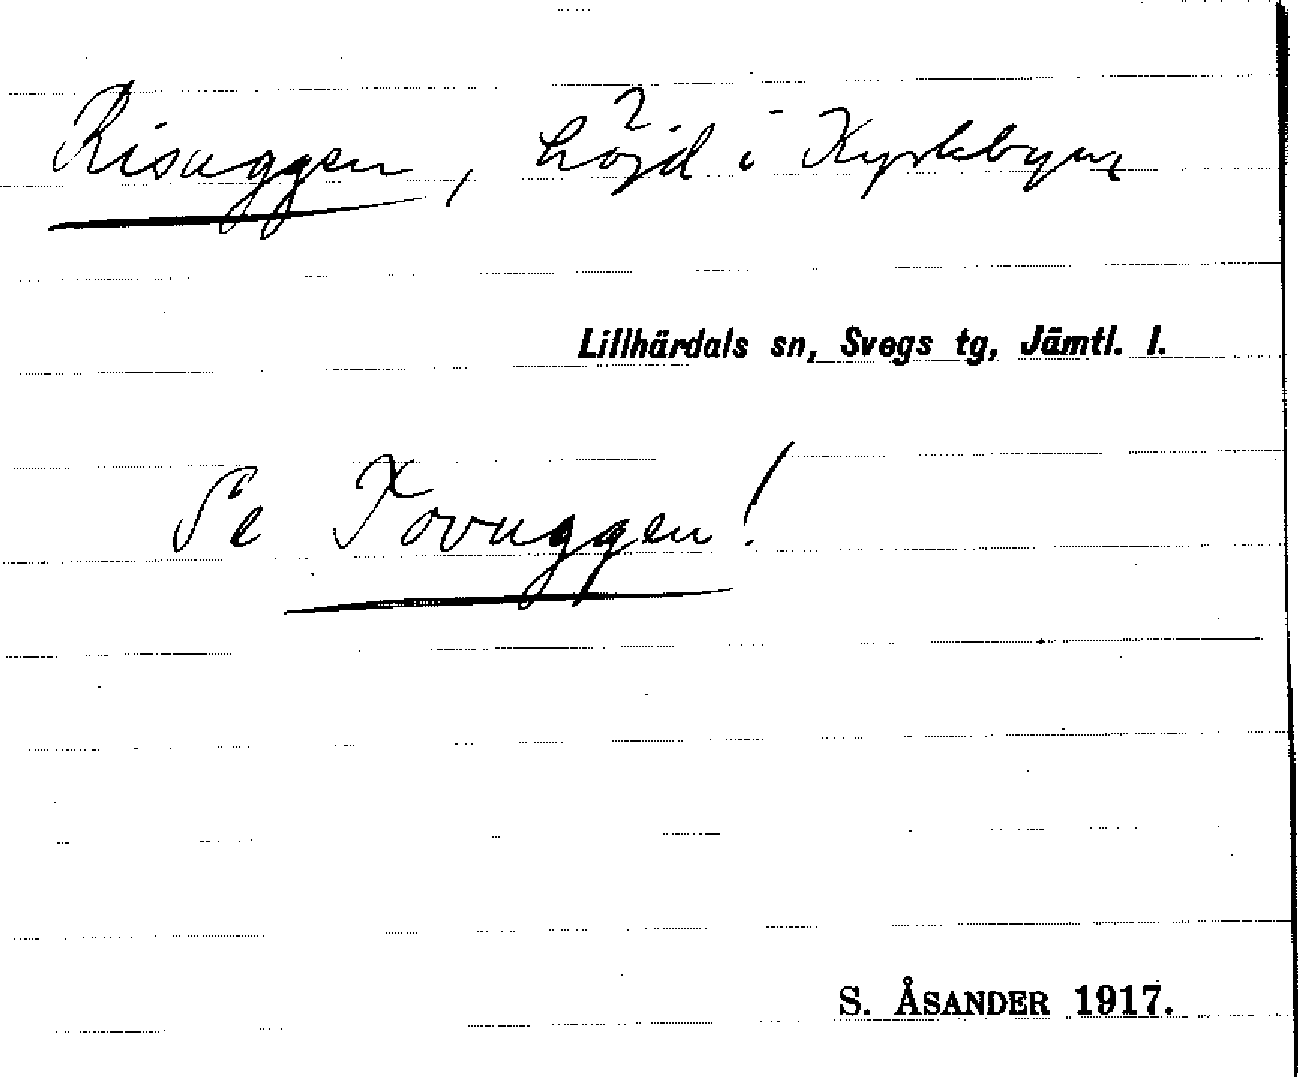 Risuggen, höjd i Kyrkbyns
Lillhärdals sn, Svegs tg, Jämtl. l.
Se Tovuggen!
S. ÅSANDER 1917.